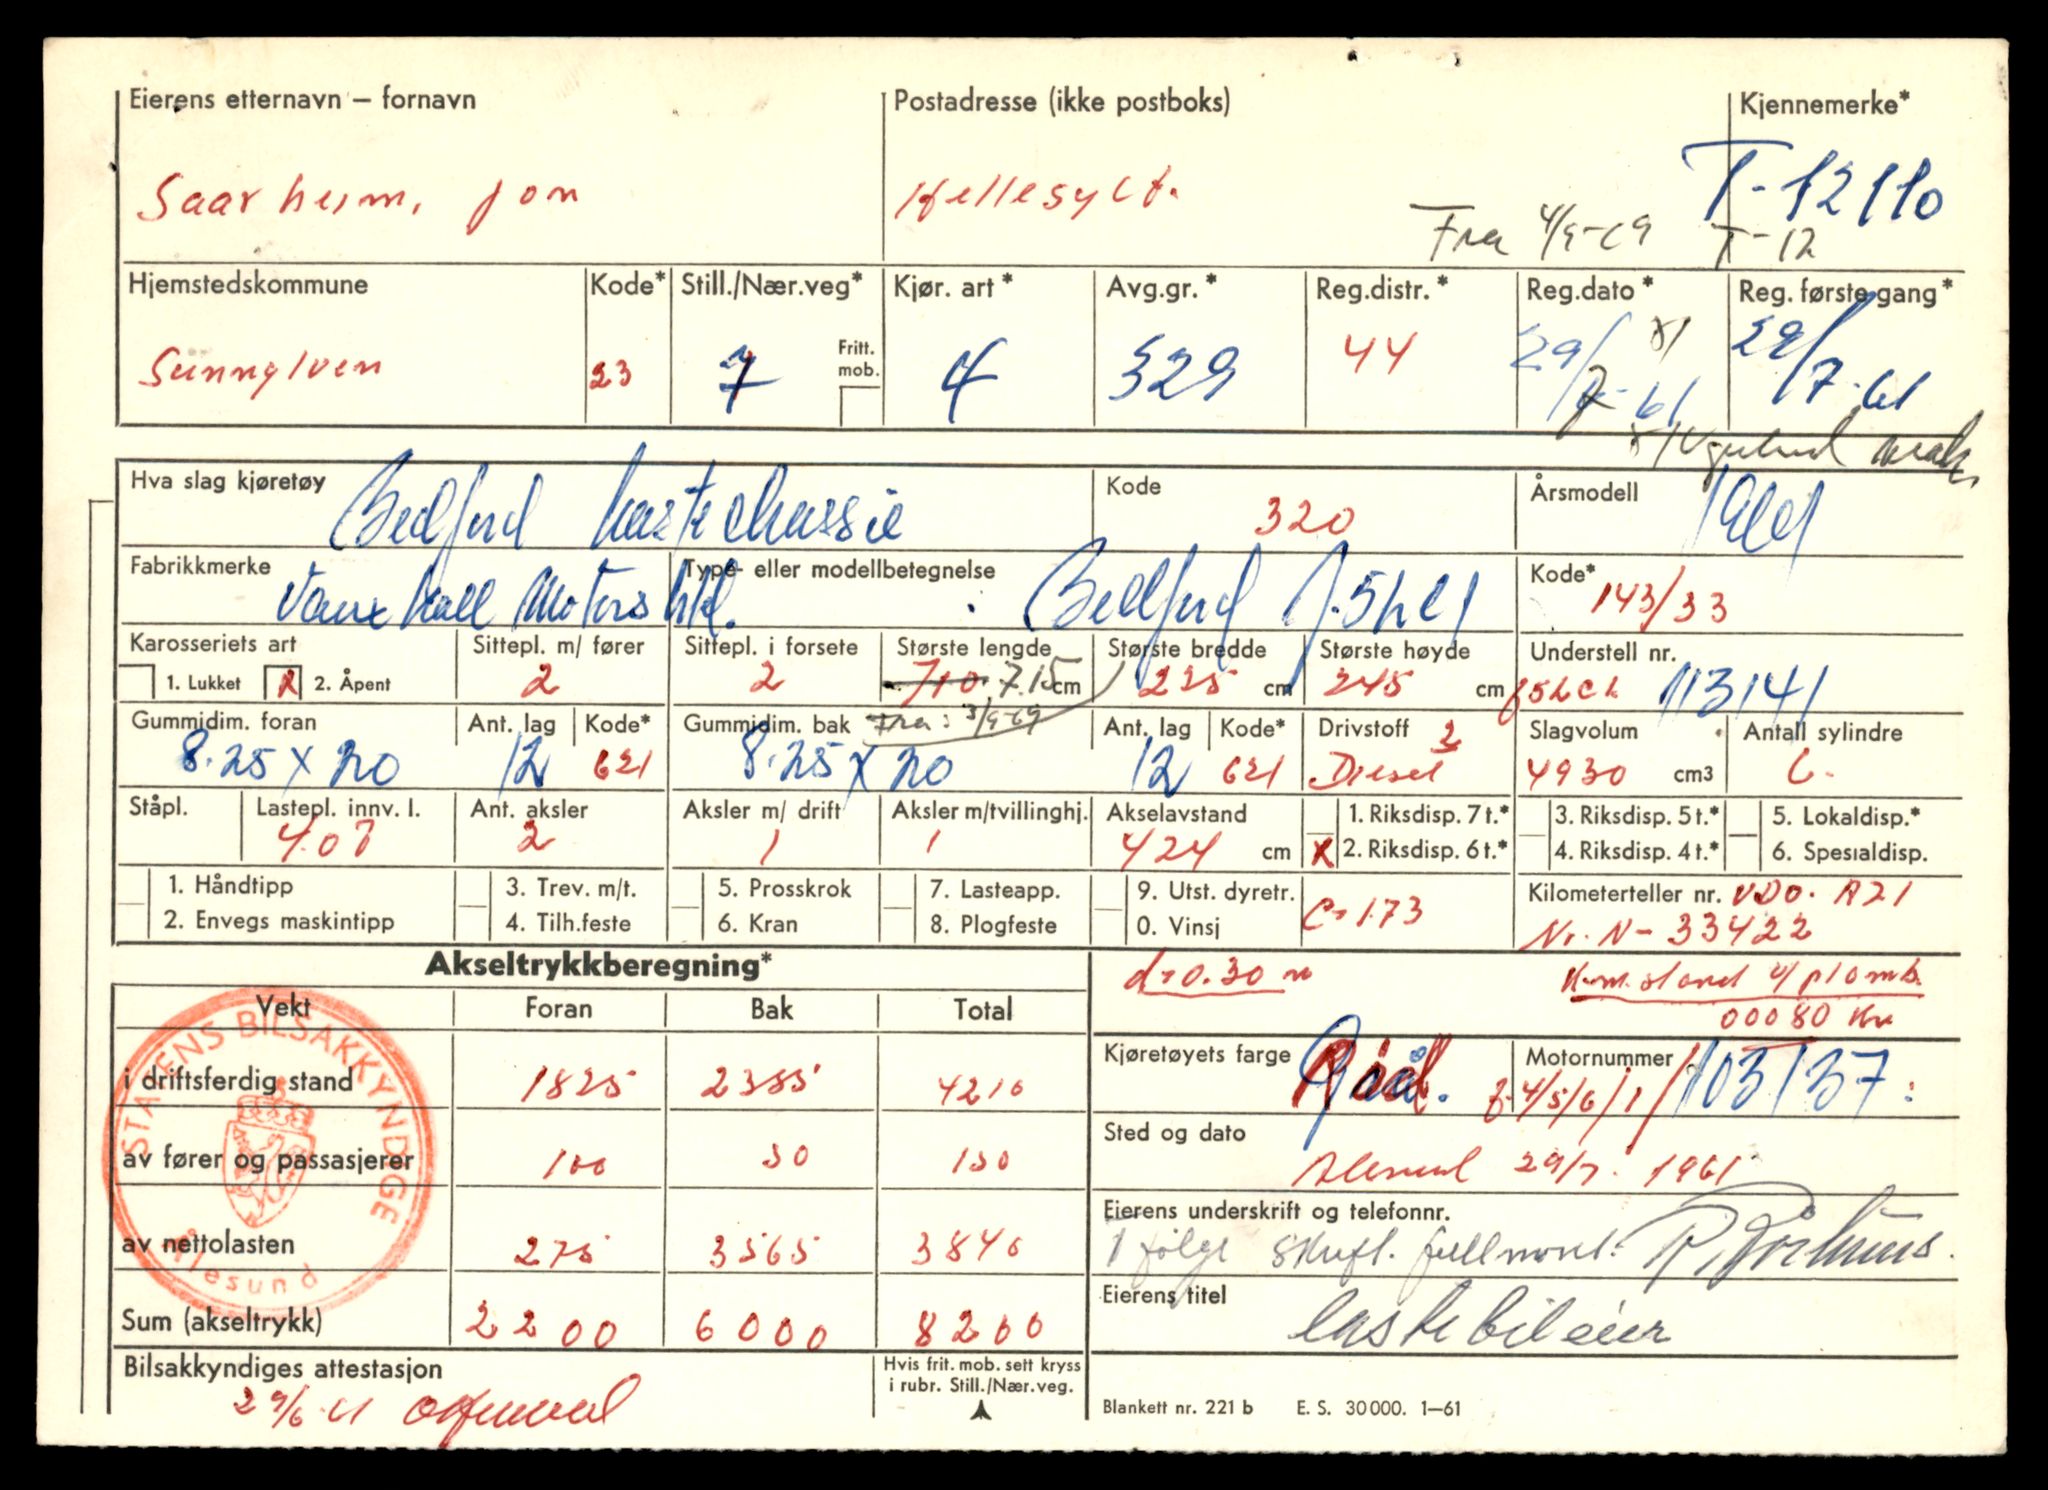 Eierens etternavn – fornavn Postadresse (ikke postboks) Kjennemerke*
Saarheim, Jon Hellesylt. T-12110
Fra 4/9-69 T-12
Hjemstedskommune Kode* Still./Nær.veg* Kjør. art* Avg.gr.* Reg.distr.* Reg.dato* Reg. første gang*
Sunnylven 23 7 Fritt. mob. 4 329 44 29/7-61 29/7-61
Hva slag kjøretøy Kode Årsmodell
Bedford lastechassie 320 1961
Fabrikkmerke Type- eller modellbetegnelse Kode*
Vauxhall Motors Ltd. Bedford J5LC1 143/33
Karosseriets art Sittepl. m/ fører Sittepl. i forsete Største lengde Største bredde Største høyde Understell nr.
1. Lukket X 2. Åpent 2 2 710 7.15 cm 225 cm 245 cm J5LC1 113141
Gummidim. foran Ant. lag Kode* Gummidim. bak Fra: 3/9-69 Ant. lag Kode* Drivstoff 2 Slagvolum Antall sylindre
8.25 x 20 12 621 8.25 x 20 12 621 Diesel 4930 cm3 6.
Ståpl. Lastepl. innv. l. Ant. aksler Aksler m/ drift Aksler m/tvillinghj. Akselavstand 1. Riksdisp. 7 t.* 3. Riksdisp. 5 t.* 5. Lokaldisp.*
4.07 2 1 1 424 cm X 2. Riksdisp. 6 t.* 4. Riksdisp. 4 t.* 6. Spesialdisp.
1. Håndtipp 3. Trev. m/t. 5. Prosskrok 7. Lasteapp. 9. Utst. dyretr. Kilometerteller nr. VDO. A21
2. Envegs maskintipp 4. Tilh.feste 6. Kran 8. Plogfeste 0. Vinsj C=1.73 Nr. N-33422
Akseltrykkberegning* d=0.30 m K.m. stand v/plomb.
00080 Km
Vekt Foran Bak Total
Kjøretøyets farge Motornummer
i driftsferdig stand 1825 2385 4210 103137
Sted og dato
av fører og passasjerer 100 50 150 Ålesund 29/7. 1961
Eierens underskrift og telefonnr.
av nettolasten 275 3565 3840 Ifølge skriftl. fullmakt.
Eierens titel
Sum (akseltrykk) 2200 6000 8200 lastebileier
Bilsakkyndiges attestasjon Hvis frit. mob. sett kryss
i rubr. Still./Nær.veg.
29/6-61
Blankett nr. 221 b E. S. 30 000. 1—61
STATENS BILSAKKYNDIGE
Ålesund